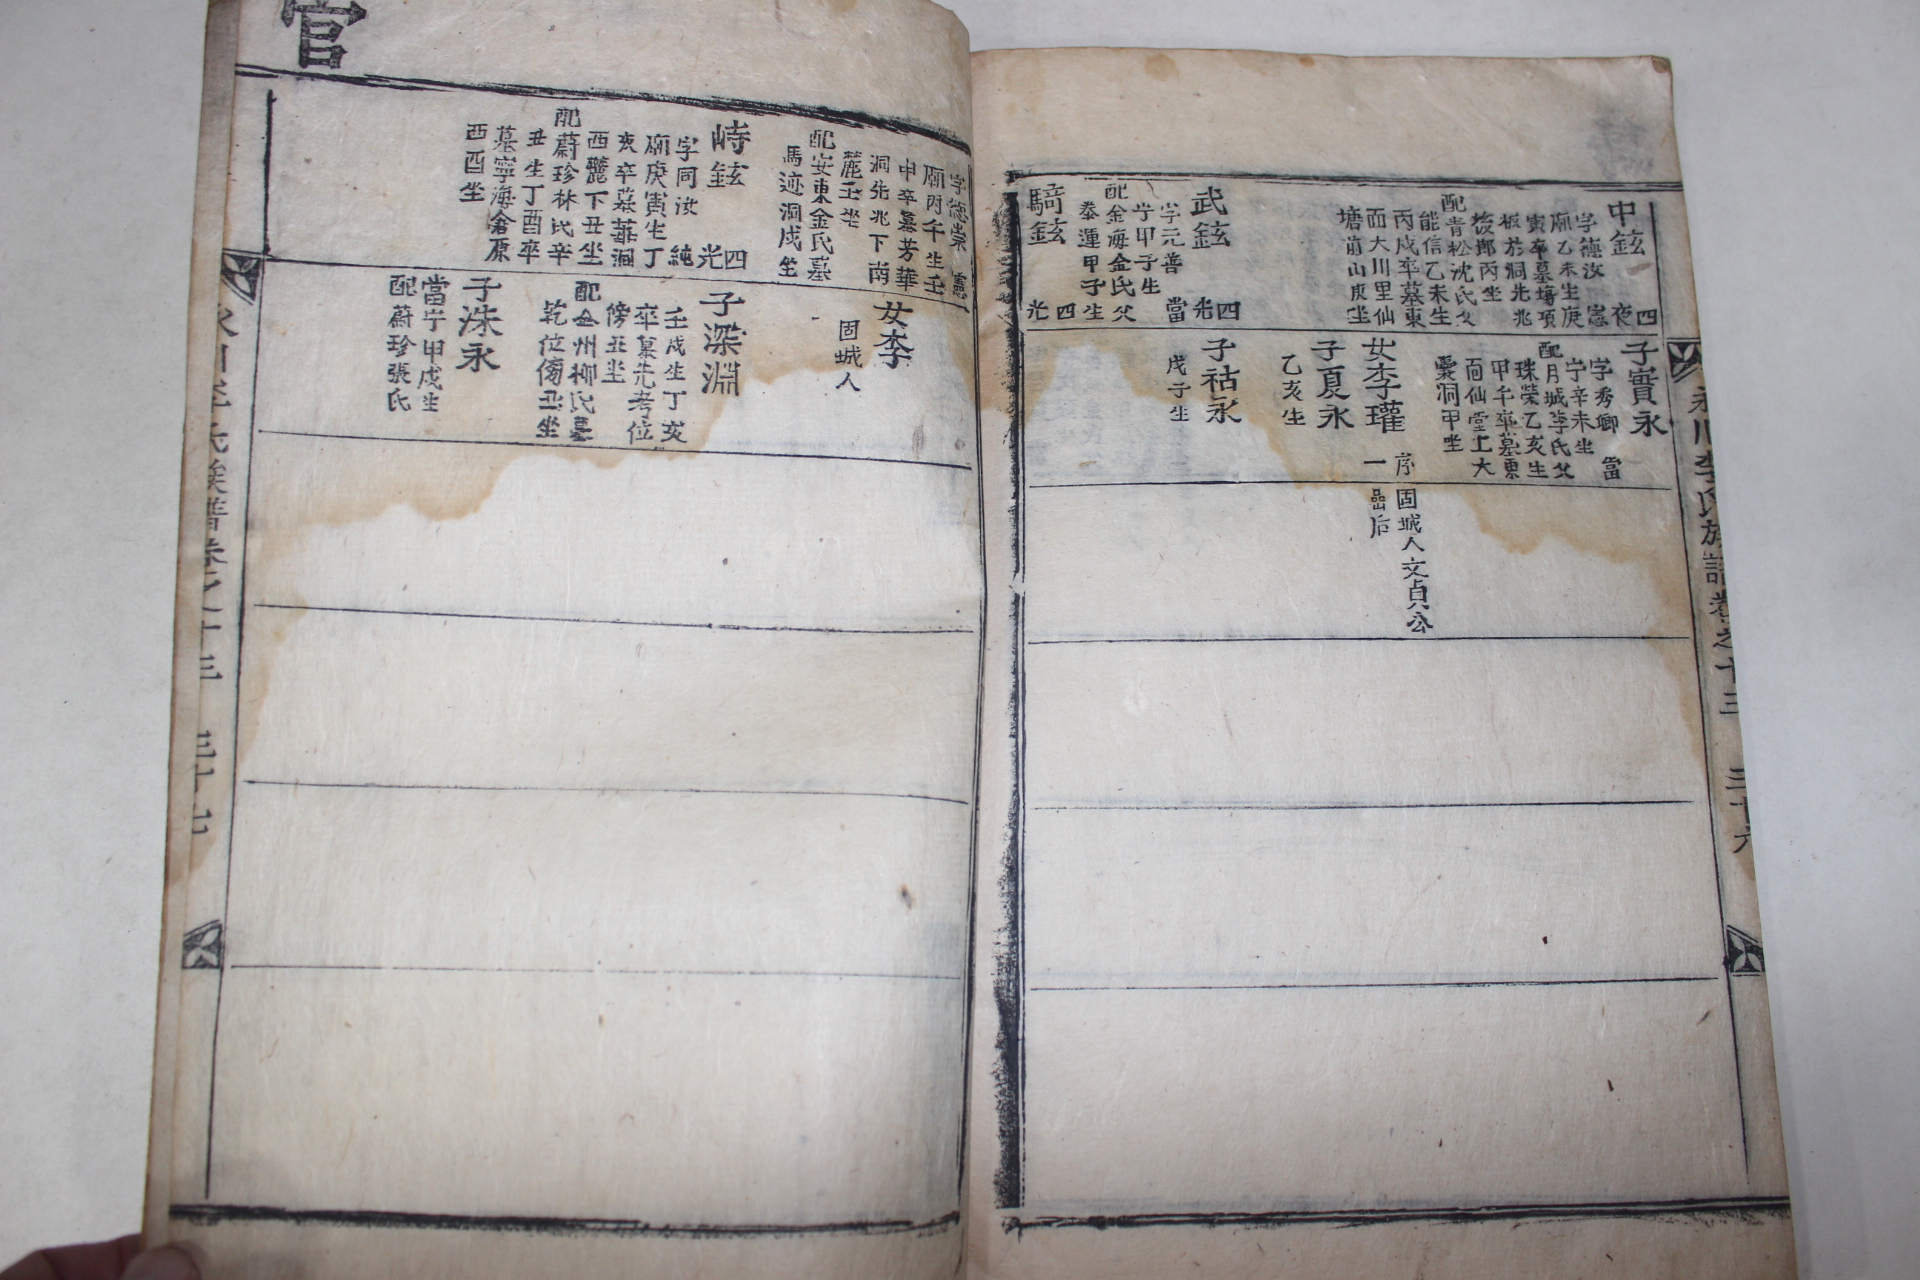 中鉉
四
夜
字德汝
憲
廟乙未生庚
寅卒墓塲項
板於洞先兆
後鄕丙坐
配青松沈氏父
能信乙未生
丙戌卒墓東
面大川里仙
塘前山庚坐
武鉉
四
光
字元善
當
宁甲子生
配金海金氏父
泰運甲子生
騎鉉
四
光
子實永
字秀卿
當
宁辛未生
配月城李氏父
珠榮乙亥生
甲午卒墓東
面仙堂上大
囊洞甲坐
女李瓘
序
一
固城人文貞公
嵒后
子夏永
乙亥生
子祜永
戊子生
永川李氏族譜卷之十三
三十六
字德崇
憲
廟丙午生壬
申卒墓芳華
洞先兆下南
麓壬坐
配安東金氏墓
馬迹洞戌坐
峙鉉
四
光
字同汝
純
廟庚寅生丁
亥卒墓華洞
西麓下丑坐
配蔚珍林氏辛
丑生丁酉卒
墓寧海倉原
酉酉坐
女李
固城人
子深淵
壬戌生丁亥
卒墓先考位
傍丑坐
配全州柳氏墓
乾位傍丑坐
子洙永
當宁甲戌生
配蔚珍張氏
官